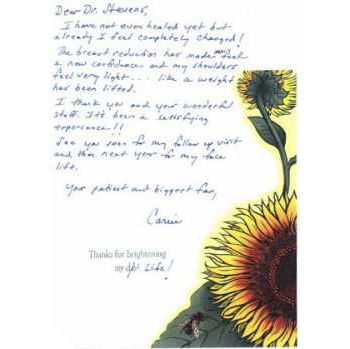 Dear Dr. Stevens,
I have not even healed yet but
already I feel completely changed!
The breast reduction has made me feel
a new confidence and my shoulders
feel very light... like a weight
has been lifted.
I thank you and your wonderful
staff. It's been a satisfying
experience!!
See you soon for my follow up visit
and then next year for my face
lift.
Your patient and biggest fan,
Carrie
Thanks for brightening
my day! Life!